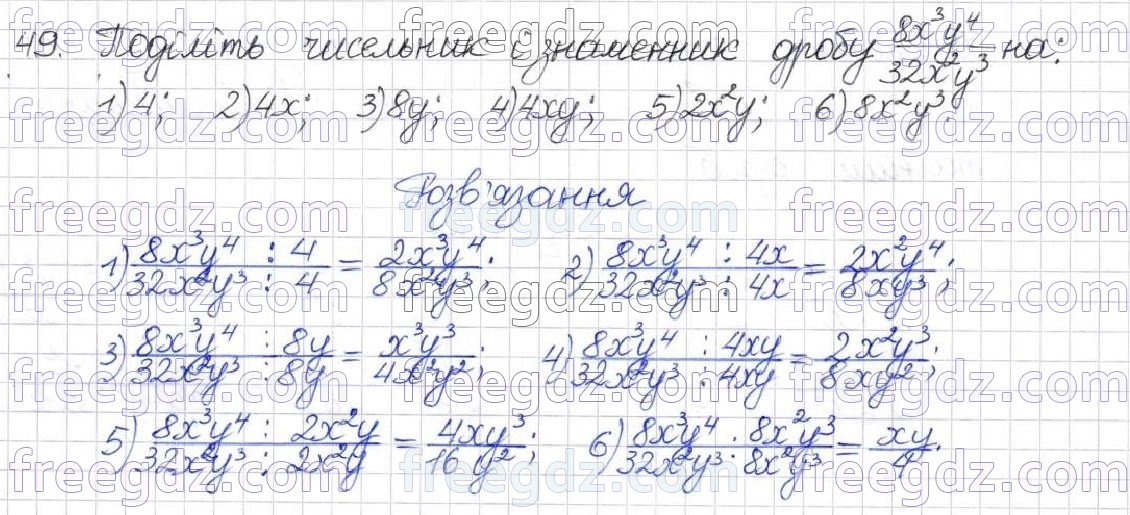 49. Поділіть чисельник і знаменник дробу 8x³y⁴/32x²y³ на:
1) 4; 2) 4x; 3) 8y; 4) 4xy; 5) 2x²y; 6) 8x²y³.
Розв'язання
1) (8x³y⁴ : 4)/(32x²y³ : 4) = 2x³y⁴/8x²y³; 2) (8x³y⁴ : 4x)/(32x²y³ : 4x) = 2x²y⁴/8xy³;
3) (8x³y⁴ : 8y)/(32x²y³ : 8y) = x³y³/4x²y²; 4) (8x³y⁴ : 4xy)/(32x²y³ : 4xy) = 2x²y³/8xy²;
5) (8x³y⁴ : 2x²y)/(32x²y³ : 2x²y) = 4xy³/16y²; 6) (8x³y⁴ : 8x²y³)/(32x²y³ : 8x²y³) = xy/4.
freegdz.com